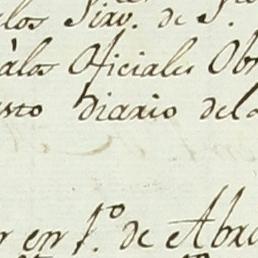 los Sirv. de S.
àlos Oficiales Obr
sto Diario del
en 1.º de Abr